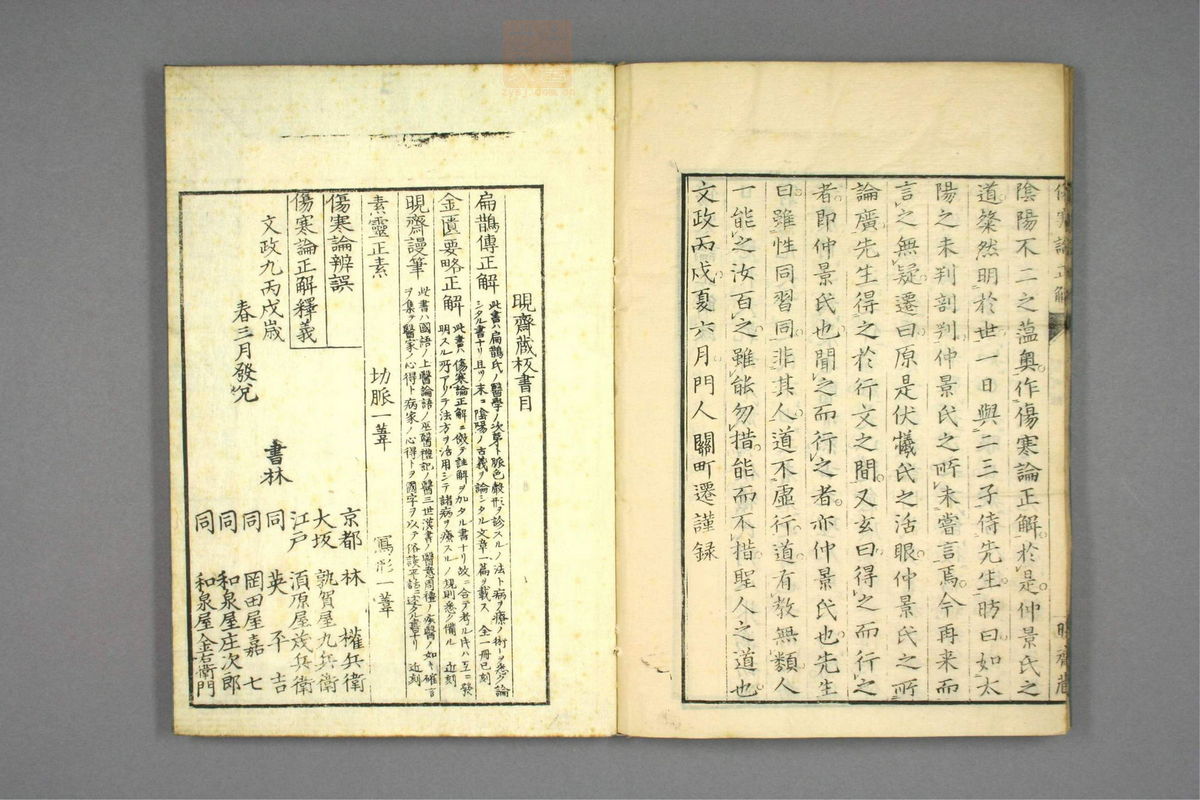 傷寒論正解
陰陽不二之薀奧作傷寒論正解於是仲景氏之
道粲然明於世一日與二三子侍先生昉曰如太
陽之未判剖判仲景氏之所未嘗言焉今再来而
言之無疑遷曰原是伏犧氏之活眼仲景氏之所
論廣先生得之於行文之間又玄曰得之而行之
者即仲景氏也聞之而行之者亦仲景氏也先生
曰雖性同習同非其人道不虚行道有教無類人
一能之汝百之雖能勿措能而不措聖人之道也
文政丙戌夏六月門人 關町遷謹録
晛齋蔵板書目
扁鵲傳正解 此書ハ扁鵲氏ノ醫學ノ次第ト脈色聲形ヲ診スルノ法ト病ヲ療ノ術ーヲ悉ク論
シタル書ナリ且ツ末ニ陰陽ノ古義ヲ論シタル文章一篇ヲ載ス 全一冊已刻
金匱要略正解 此書ハ傷寒論正解ニ傚テ註解ヲ加タル書ナリ故ニ合テ考ル片ハ互ニ發
明スル所アリテ法方ヲ活用シテ諸病ヲ療スルノ規則悉ク備ル 近刻
晛齋謾筆 此書ハ國語ノ上醫論語ノ巫醫禮記ノ醫三世漢書ノ醫意周禮ノ疾醫ノ如キ確言
ヲ集テ醫家ノ心得ト病家ノ心得トヲ國字ヲ以テ俗談平話ニ述タル書ナリ 近刻
素靈正素 切脈一葦 寫形一葦
傷寒論辨誤
傷寒論正解釋義
文政九丙戌歳
春三月發兌
書林
京都 林 權兵衛
大坂 敦賀屋九兵衛
江戸 須原屋茂兵衛
同 英 平吉
同 岡田屋嘉七
同 和泉屋庄次郎
同 和泉屋金右衛門